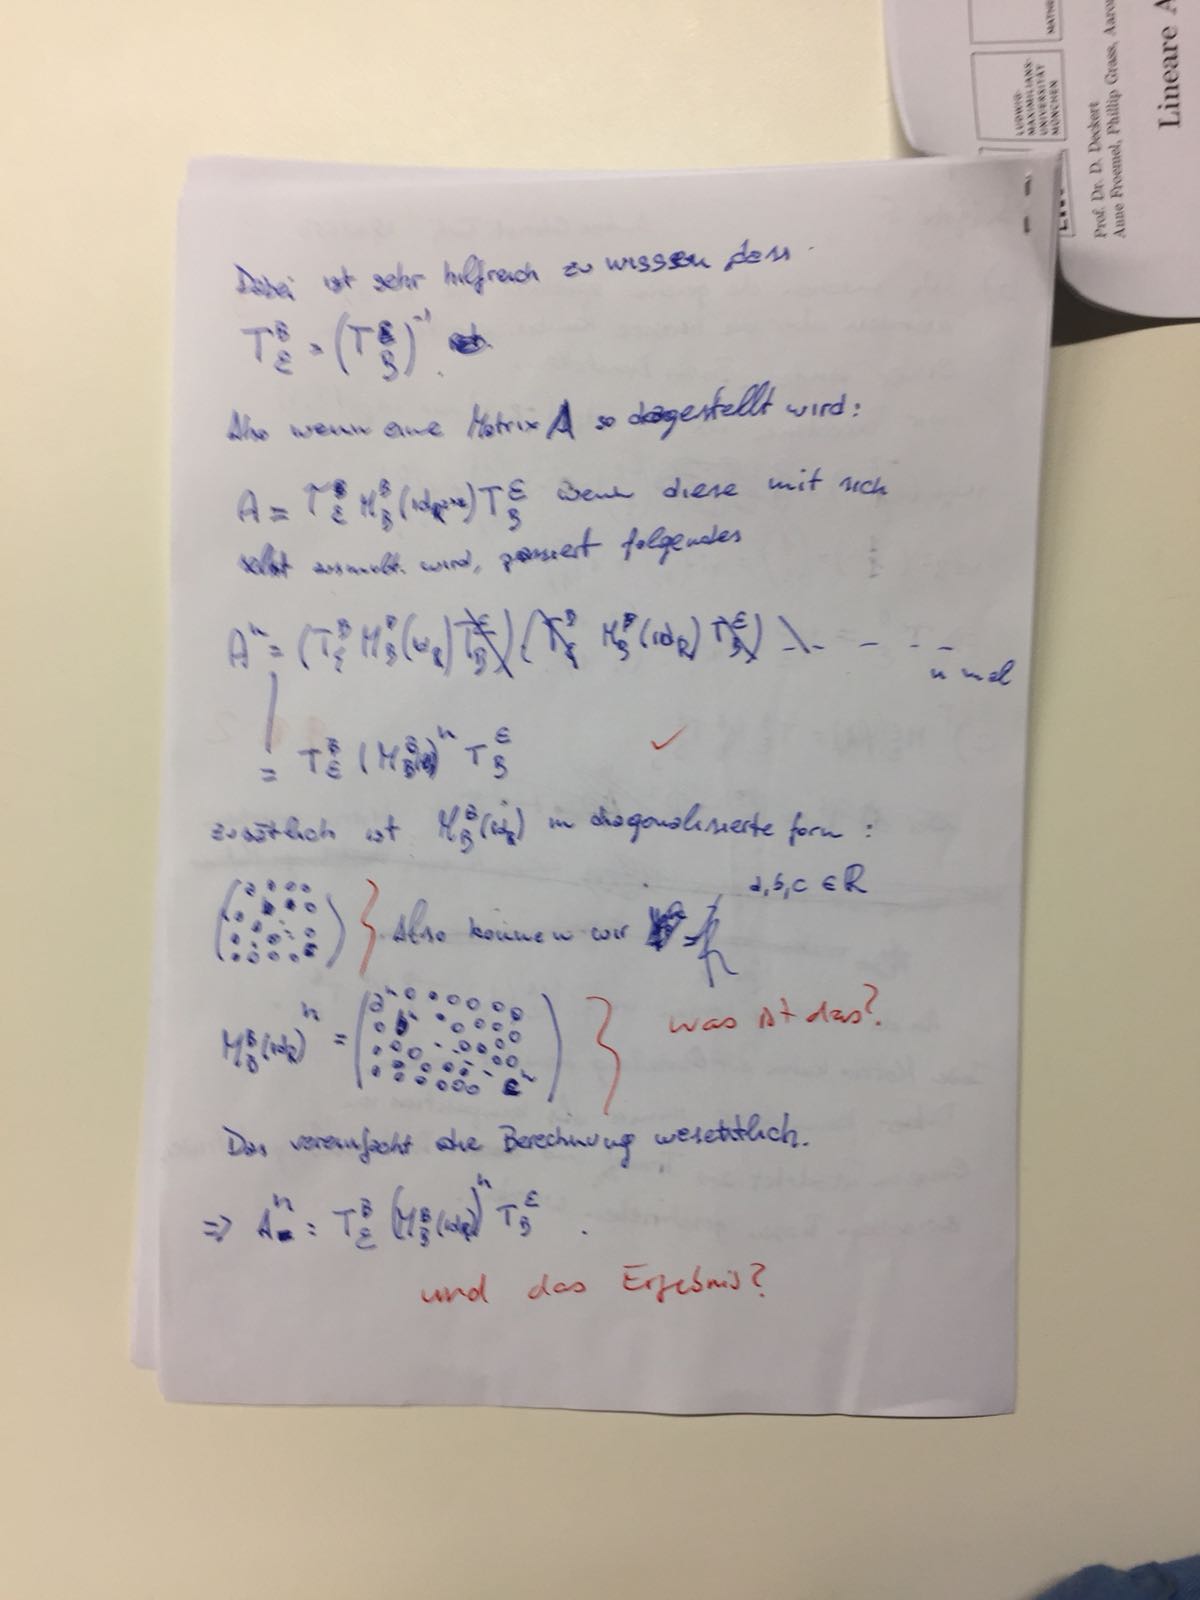 LUDWIG-
MAXIMILIANS-
UNIVERSITÄT
MÜNCHEN
Prof. Dr. D. Deckert
Anne Froemel, Phillip Grass, Aaron
Lineare A
Dabei ist sehr hilfreich zu wissen dass
T_E^B = (T_B^E)^{-1}.
Also wenn eine Matrix A so dargestellt wird:
A = T_E^B M_B^B (id) T_B^E wenn diese mit sich
selbst ausmult. wird, passiert folgendes
A^n = (T_E^B M_B^B (id_R) T_B^E) (T_E^B M_B^B (id_R) T_B^E) - - - -
n mal
= T_E^B (M_B^B)^n T_B^E
zusätlich ist M_B^B (id_R) in diagonalisierte form :
a, b, c ∈ R
Also können wir
M_B^B (id_R)^n =
was ist das?
Das vereinfacht die Berechnung wesetntlich.
=> A^n = T_E^B (M_B^B (id_R))^n T_B^E .
und das Ergebnis?